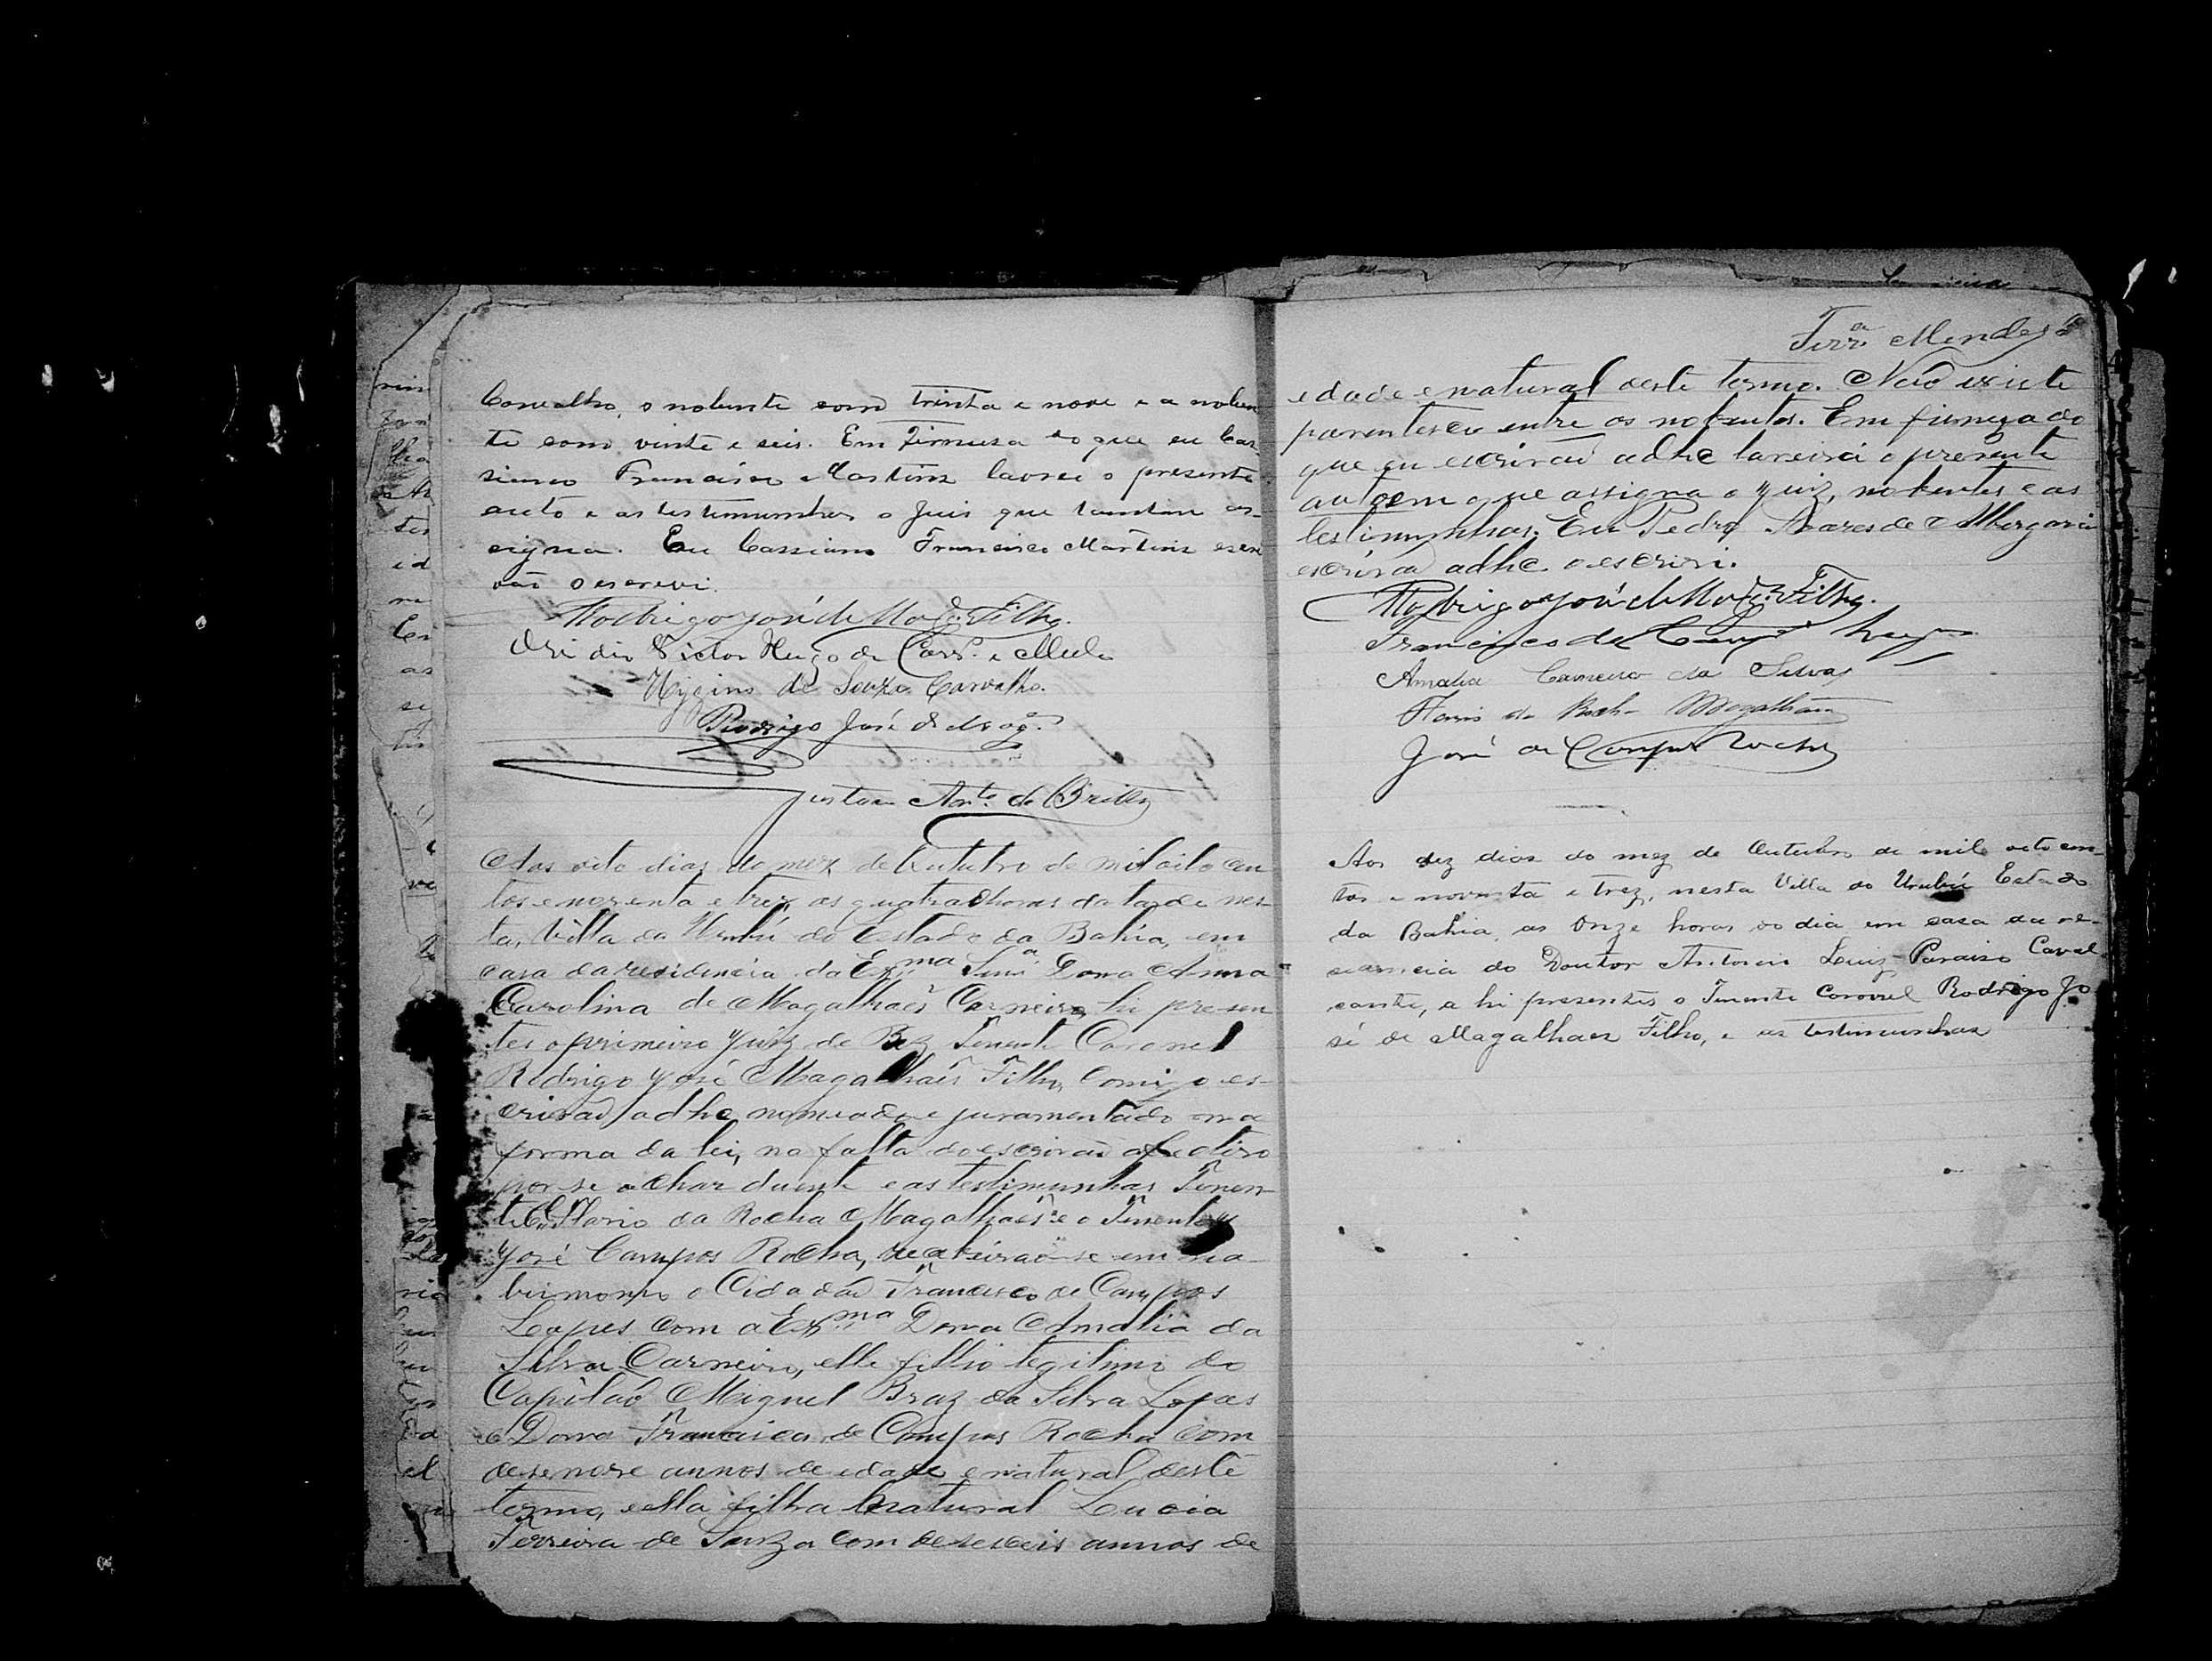 Carvalho, o nubente com trinta e nove e a nuben
te com vinte e seis. Em firmesa do que eu Cas-
siano Francisco Martins lavrei o presente
auto e as testimunhas o Juis que tambem as-
signa. Eu Cassiano Francisco Martins escri
vão o escrevi.
Rodrigo José de Mag. Filho.
Victor Hugo de e Mello
Higino de Souza Carvalho.
Rodrigo José de Mag.es
Ant.o de Britto
Aos oito dias do mez de Outubro de mil oito cen
tos e noventa e trez, as quatro horas da tarde nes-
ta, Villa do Urubú do Estado da Bahia, em
casa da residencia da Ex.ma Snr.a Dona Anna
Carolina de Magalhaẽs Carneiro, hi presen
tes o primeiro Juiz de Paz Tenente Coronel
Rodrigo José Magalhaẽs Filho, Comigo es-
crivaõ adhc nomeado e juramentado na
forma da lei, na falta do escrivaõ efectivo
por se achar duente e as testimunhas Tenen-
te C.el Florio da Rocha Magalhaẽs e o Tenente
José Campos Rocha, receberaõ-se em ma-
trimonio o Cidadaõ Francisco de Campos
Lopes Com a Ex.ma Dona Amalia da
Silva Carneiro, elle filho legitimo do
Capitaõ Miguel Braz da Silva Lopes
e Dona Francisca de Campos Rocha com
desenove annos de edade e natural deste
termo, e ella filha natural Lucia
Ferreira de Souza com deseseis annos de
Ferr.a Mendes
edade e natural deste termo. Naõ existe
parentesco entre os nubentes. Em firmesa do
que eu escrivaõ adhc lavrei o presente
auto em que assigna o Juiz, nubentes e as
testimunhas. Eu Pedro Soares de Albergaria
escrivaõ adhc o escrivi.
Rodrigo José de Mag. Filho.
Francisco de Campos
Amalia Carneiro da Silva
Floris da Rocha Magalhães
José de Campos Rocha
Aos dez dias do mez de Outubro de mil oito cen-
tos e noventa e trez, nesta Villa do Urubú Estado
da Bahia, as onze horas do dia em casa da re-
sidencia do Doutor Antonio Luiz Paraiso Caval
cante, a hi presentes o Tenente Coronel Rodrigo Jo
sé de Magalhaes Filho, e as testimunhas